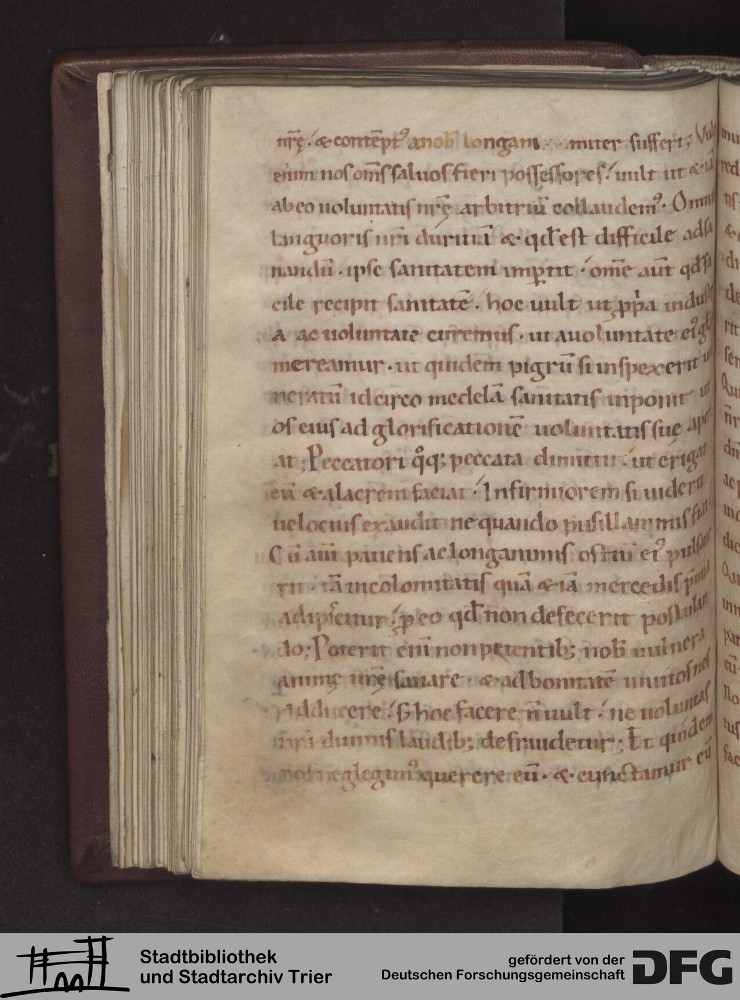 nrę. & contēpt᾽ a nob longani miter suffert; Vul
enim nos om̄s saluos fieri possessores. uult ut &
ab eo uoluntatis nrę arbitriū collaudem᾽. Omnis
languoris nri duritiā & qđ est difficile ad sa
nandū. ipse sanitatem imꝑtit. om̄e aut̄ qđ fa
cile recipit sanitatē. hoc uult ut ꝓpria indust
a ac uoluntate curemus. ut a uoluntate ei᾽ gl
mereamur. ut quidem pigrū si inspexerit
neratū idcirco medelā sanitatis inponit ut
os eius ad glorificationē uoluntatis suę ape
at; Peccatori q᾽q; peccata dimittit. ut erigat
eū & alacrem faciat. Infirmiorem si uiderit
uelocius exaudit ne quando pusillanimis fiat
Cū aut̄ patiens ac longanimis ostiū ei᾽ pulsaue
rit. tā incolomitatis quā & iā mercedis p̄mia
adipiscitur. ꝓ eo qđ non defecerit postulan
do; Poterit eni non petentib; nob uulnera
animę nrę sanare. & ad bonitatē inuitos nos
adducere. s; hoc facere n̄ uult. ne uoluntas
nri diuinis laudib; defraudetur; Et quidem
nos neglegim᾽ querere eū. & cunctamur eū
Stadtbibliothek
und Stadtarchiv Trier
gefördert von der
Deutschen Forschungsgemeinschaft
DFG